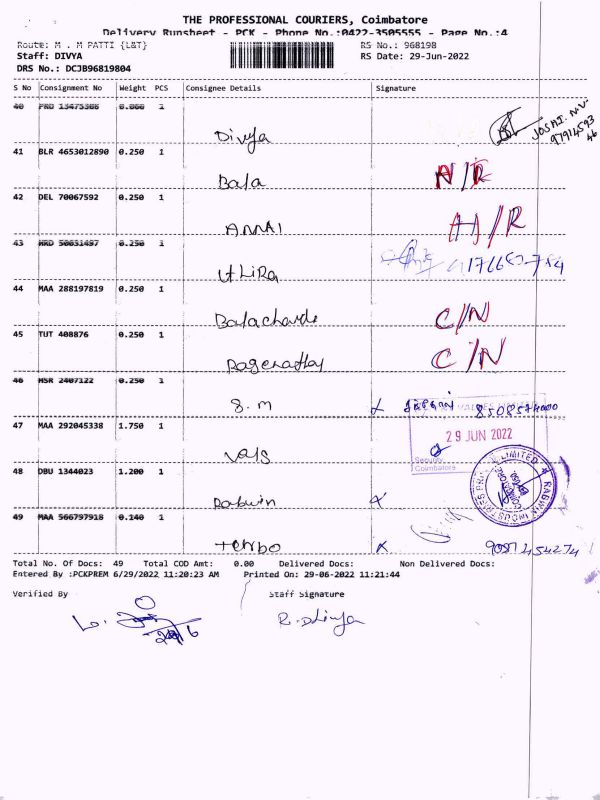 THE PROFESSIONAL COURIERS, Coimbatore
Delivery Runsheet - PCK - Phone No.:0422-3505555 - Page No.:4
Route: M . M PATTI {L&T}
RS No.: 968198
Staff: DIVYA
RS Date: 29-Jun-2022
DRS No.: DCJB96819804
S No Consignment No Weight PCS Consignee Details Signature
40 PRO 13475386 0.060 1
Divya
JOSHI. N.V-
46
41 BLR 4653012890 0.250 1
Bala
N/R
42 DEL 70067592 0.250 1
ANNAI
H/R
43 0.250 1
UtliRa
44 MAA 288197819 0.250 1
C/N
45 TUT 408876 0.250 1
C/N
46 MSR 2407122 0.250 1
S.M
8508574000
47 MAA 292045338 1.750 1
29 JUN 2022
Security
Coimbatore
Vals
48 DBU 1344023 1.200 1
Rabwin
49 MAA 566797918 0.140 1
Total No. Of Docs: 49 Total COD Amt: 0.00 Delivered Docs: Non Delivered Docs:
Entered By :PCKPREM 6/29/2022 11:20:23 AM Printed On: 29-06-2022 11:21:44
Verified By Staff Signature
R. Divya